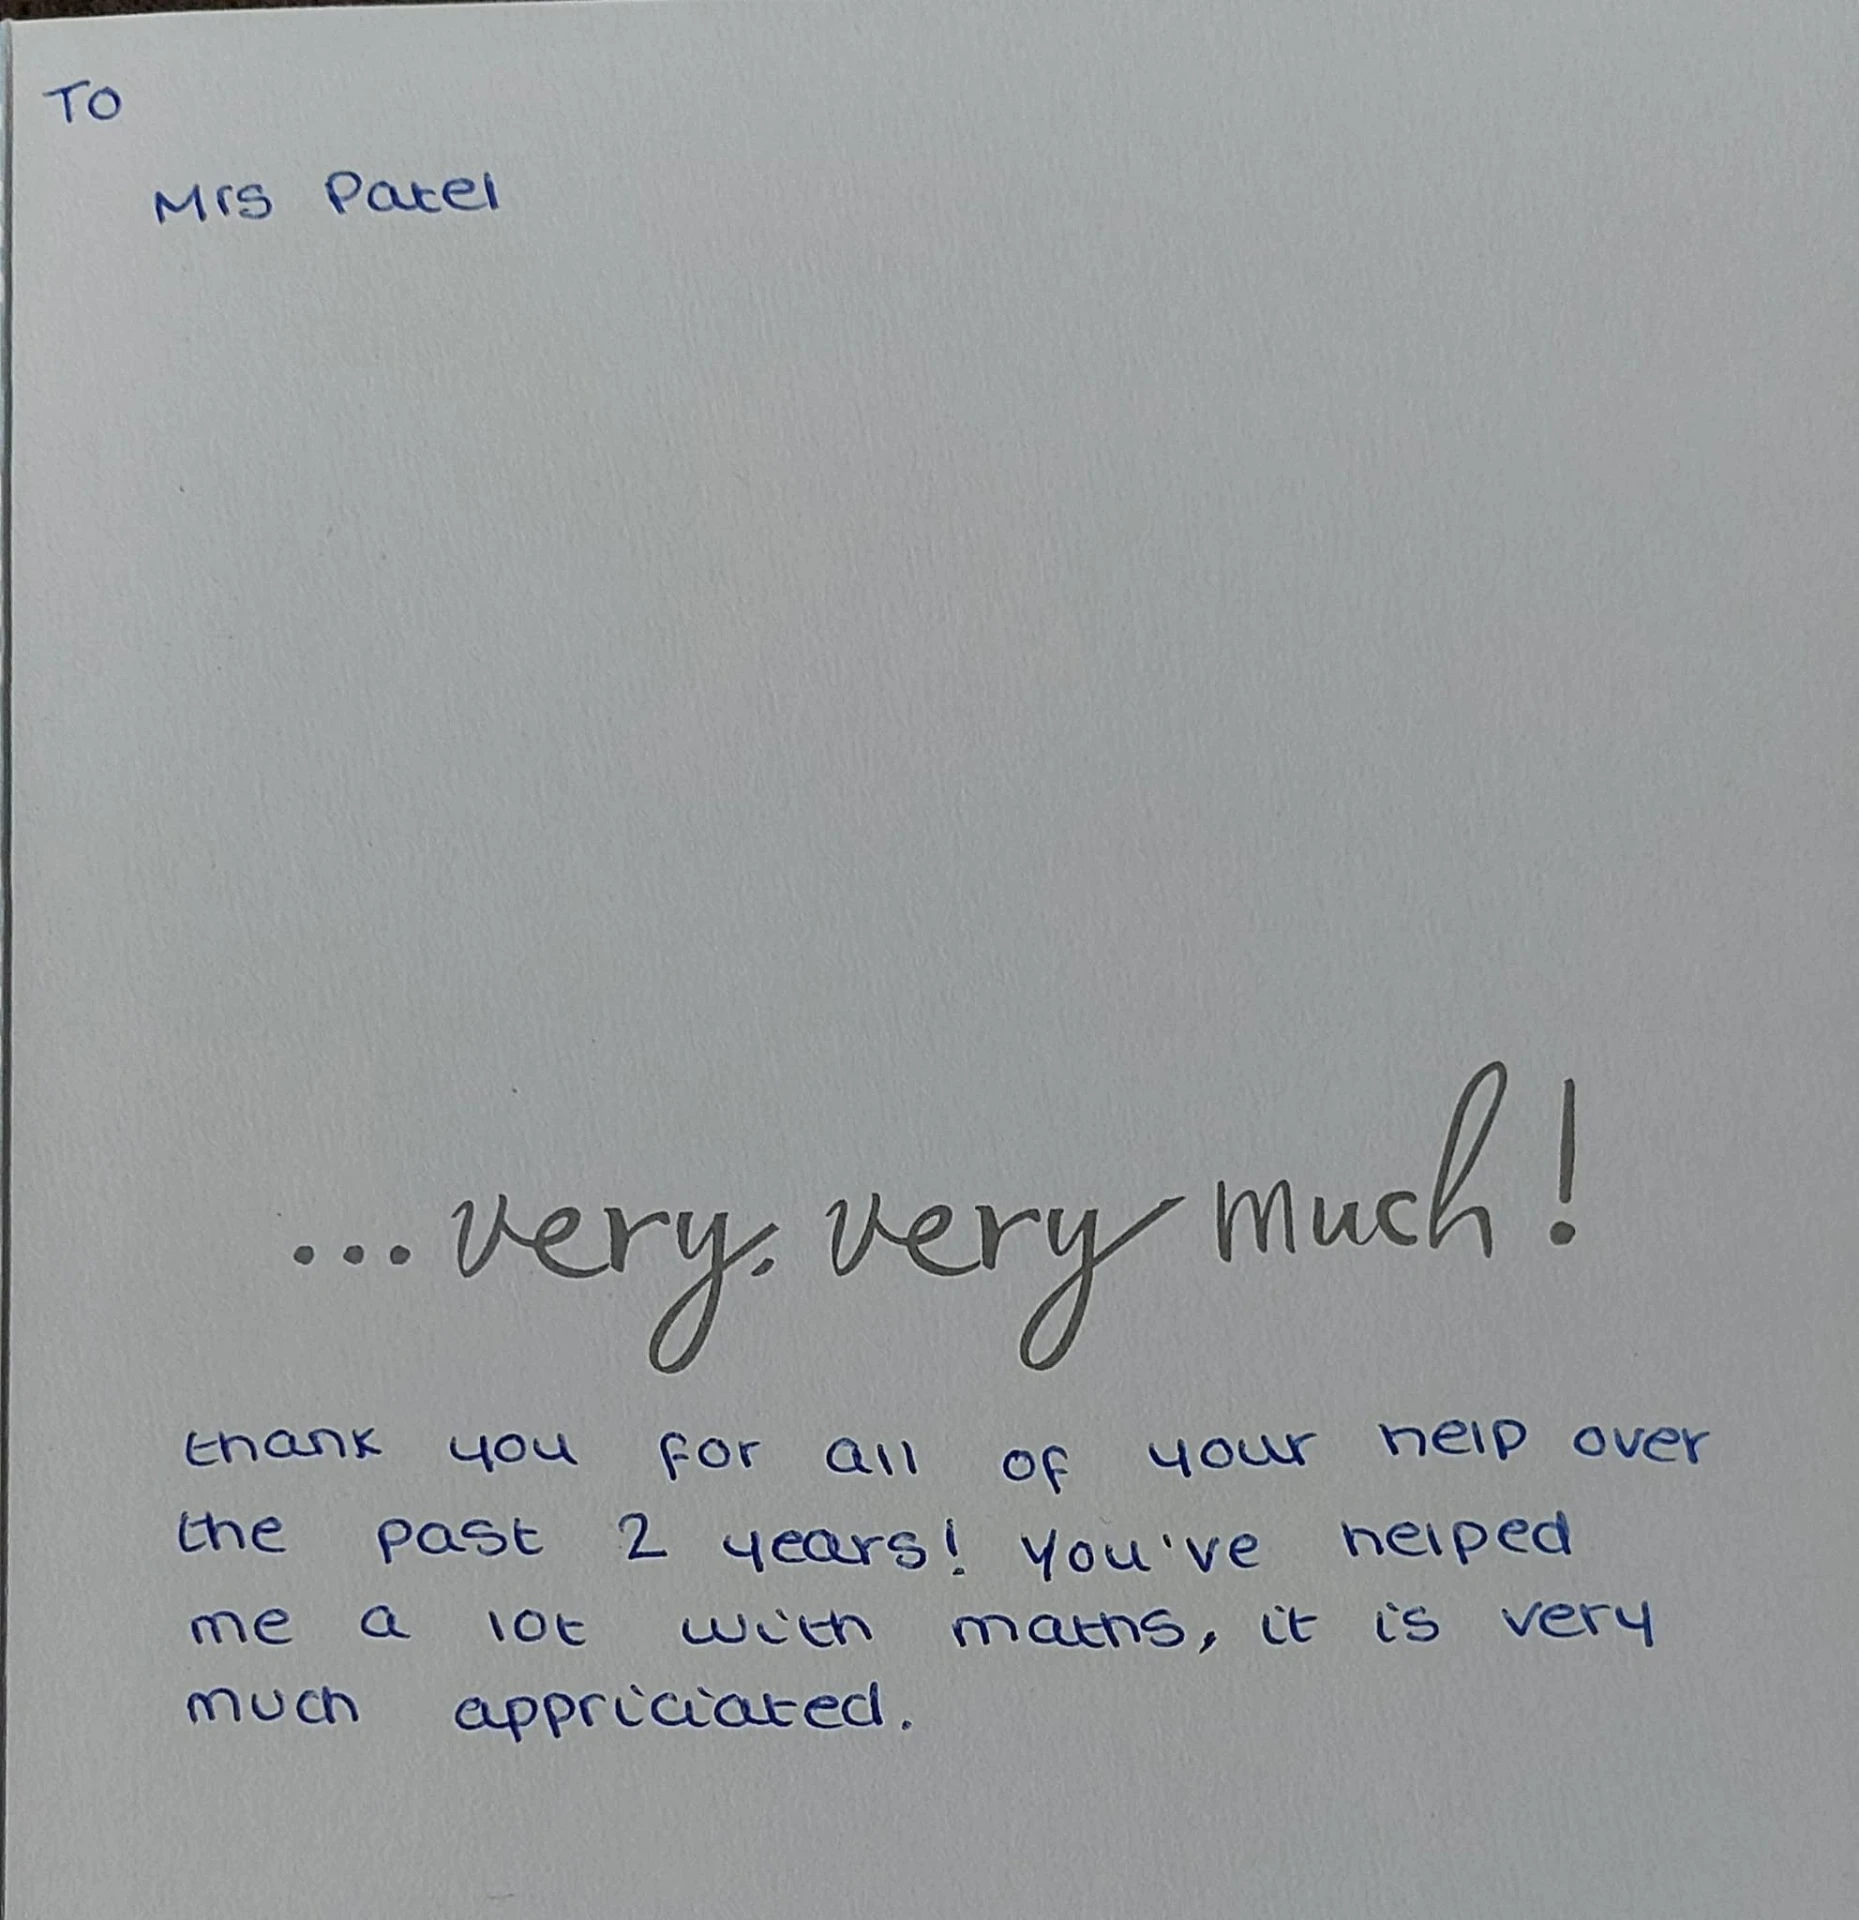 TO
Mrs Patel
...very, very much!
thank you for all of your help over
the past 2 years! You've helped
me a lot with maths, it is very
much appriciated.